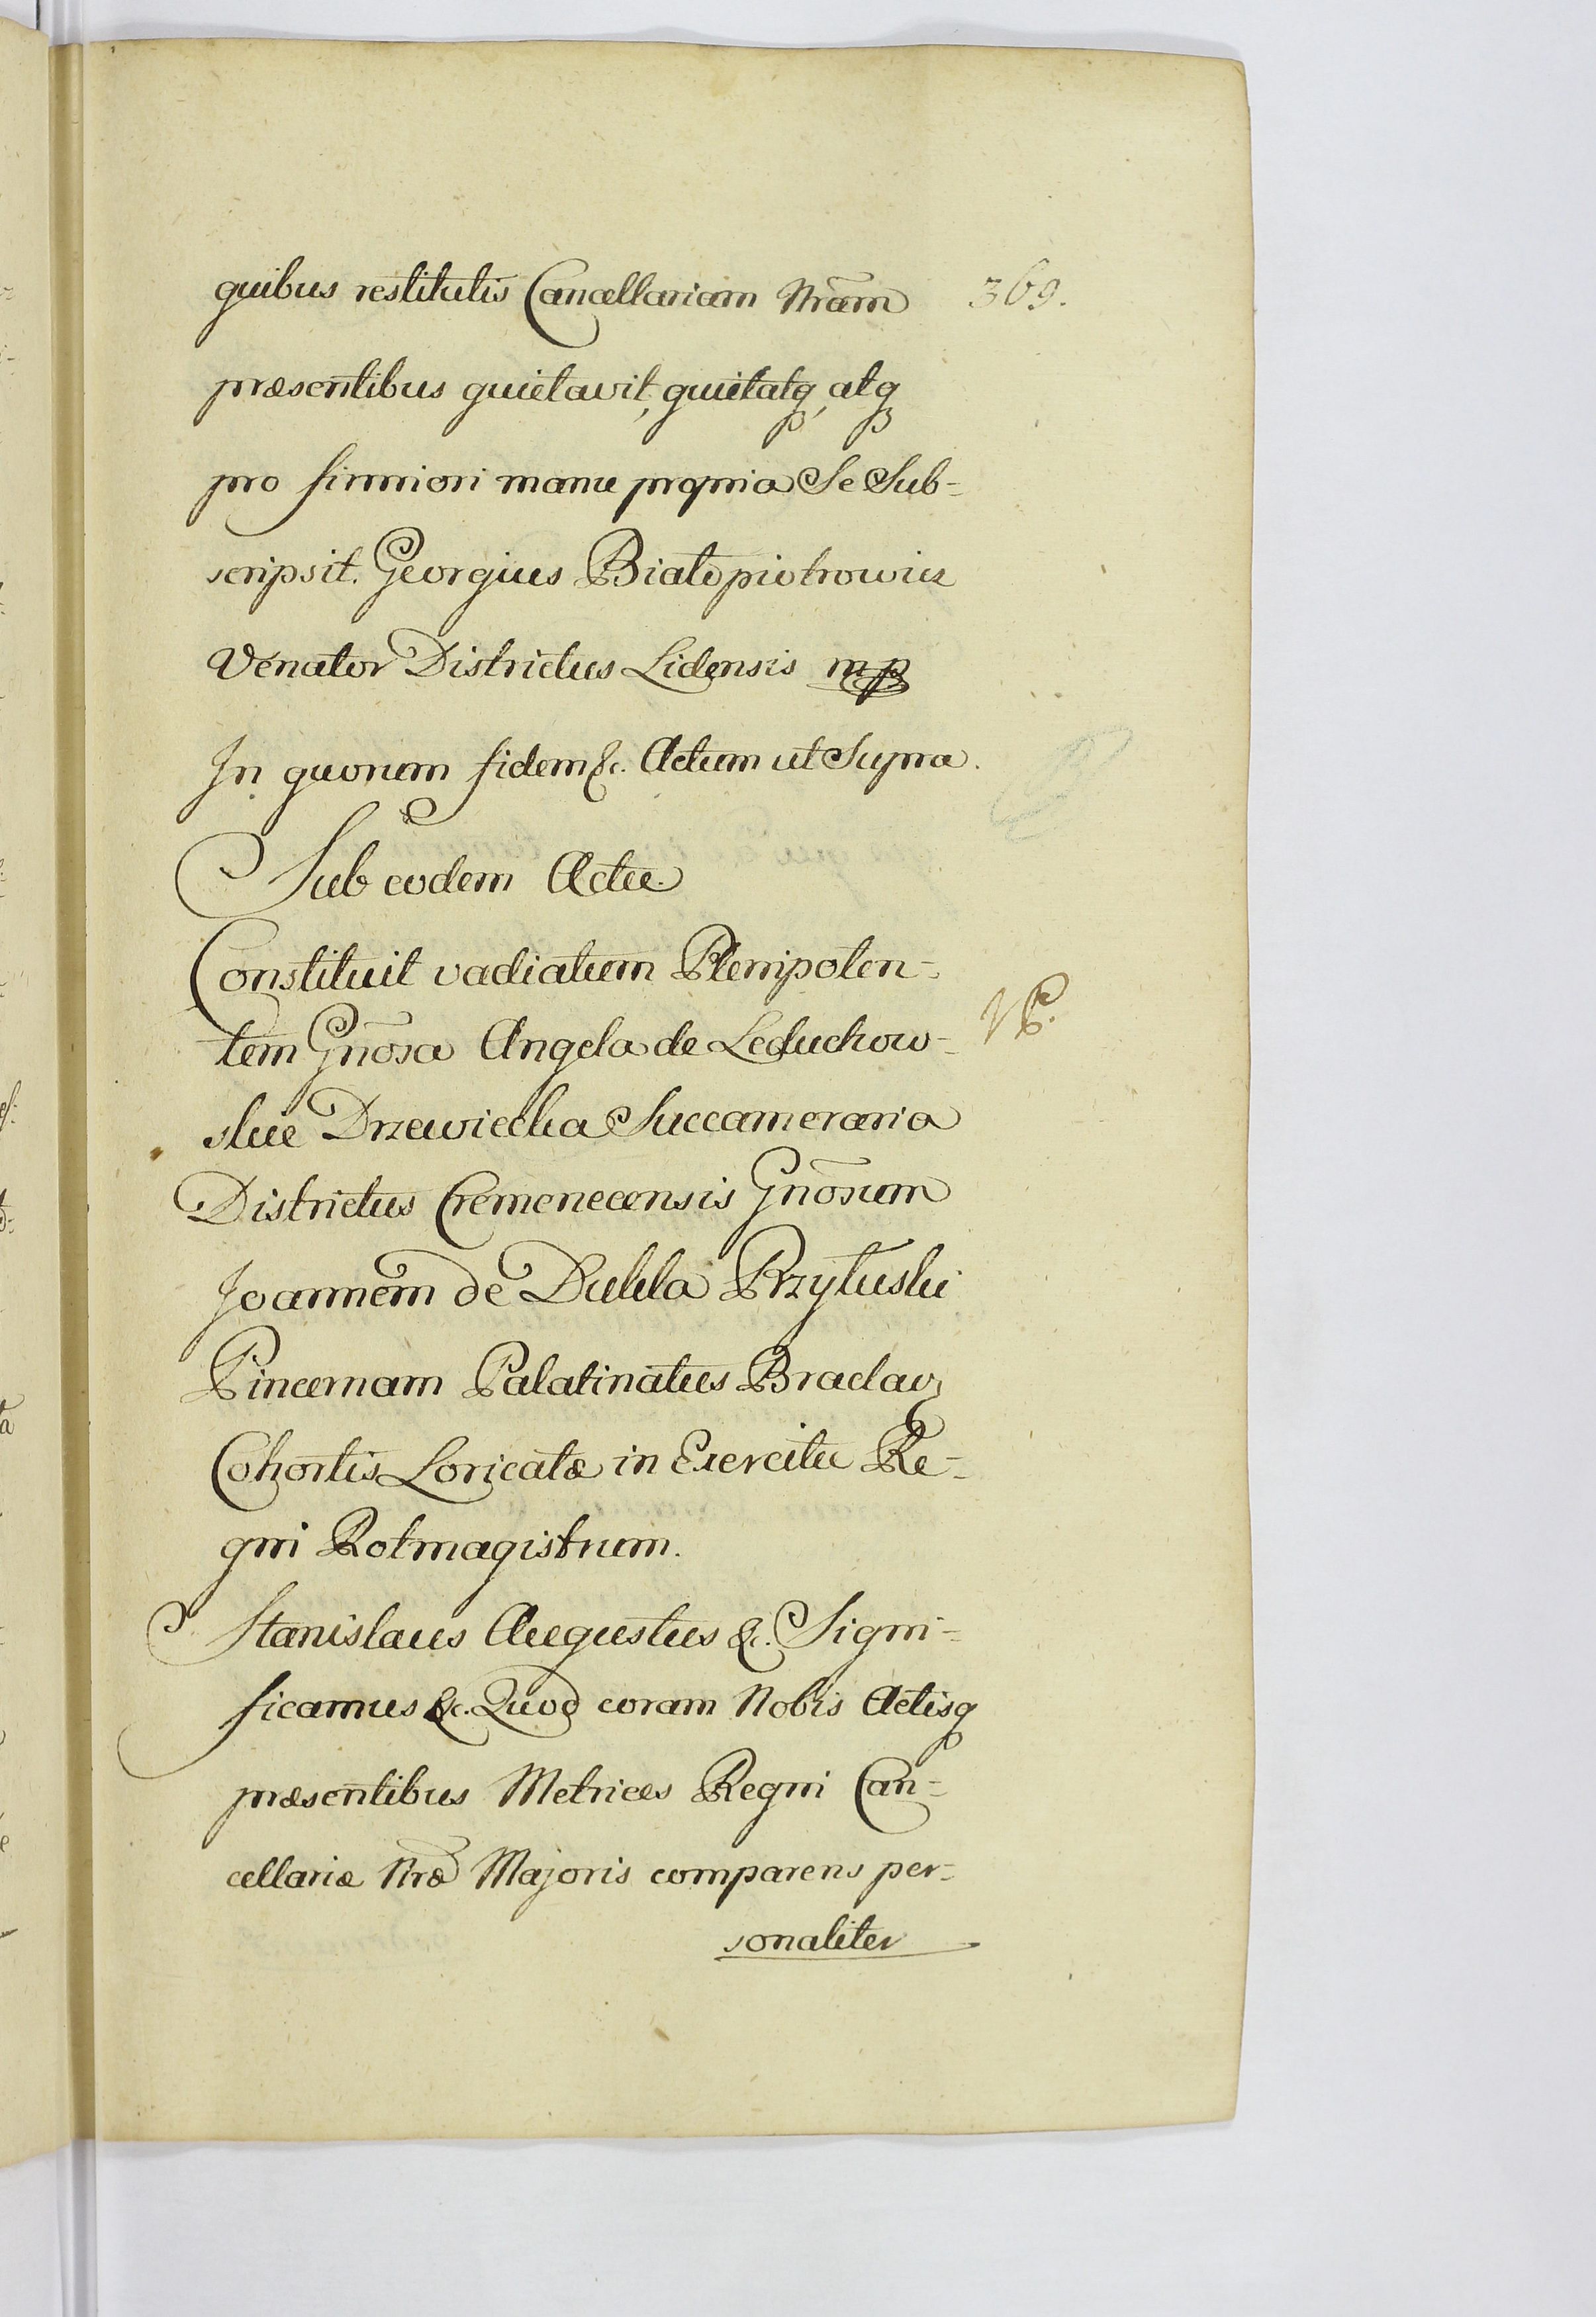 quibus restitutis Cancellariam Nrãm 369.
præsentibus quietavit, quietatq, atq
pro firmiori manu propria Se Sub-
scripsit. Georgius Białopiotrowicz
Venator Districtus Lidensis mp
In quorum fidem &c. Actum ut Supra.
Sub eodem Actu.
Constituit vadiatum Plenipoten-
tem Gnõsa Angela de Leduchow-
skie Drzewiecka Succameraria
Districtus Cremenecensis Gnõsum
Joannem de Dukla Przyłuski
Pincernam Palatinatus Braclav
Cohortis Loricatæ in Exercitu Re-
gni Rotmagistrum.
Stanislaus Augustus &c. Signi-
ficamus &c. Quod coram Nobis Actisq
præsentibus Metrices Regni Can-
cellariæ Nræ Majoris comparens per-
sonaliter